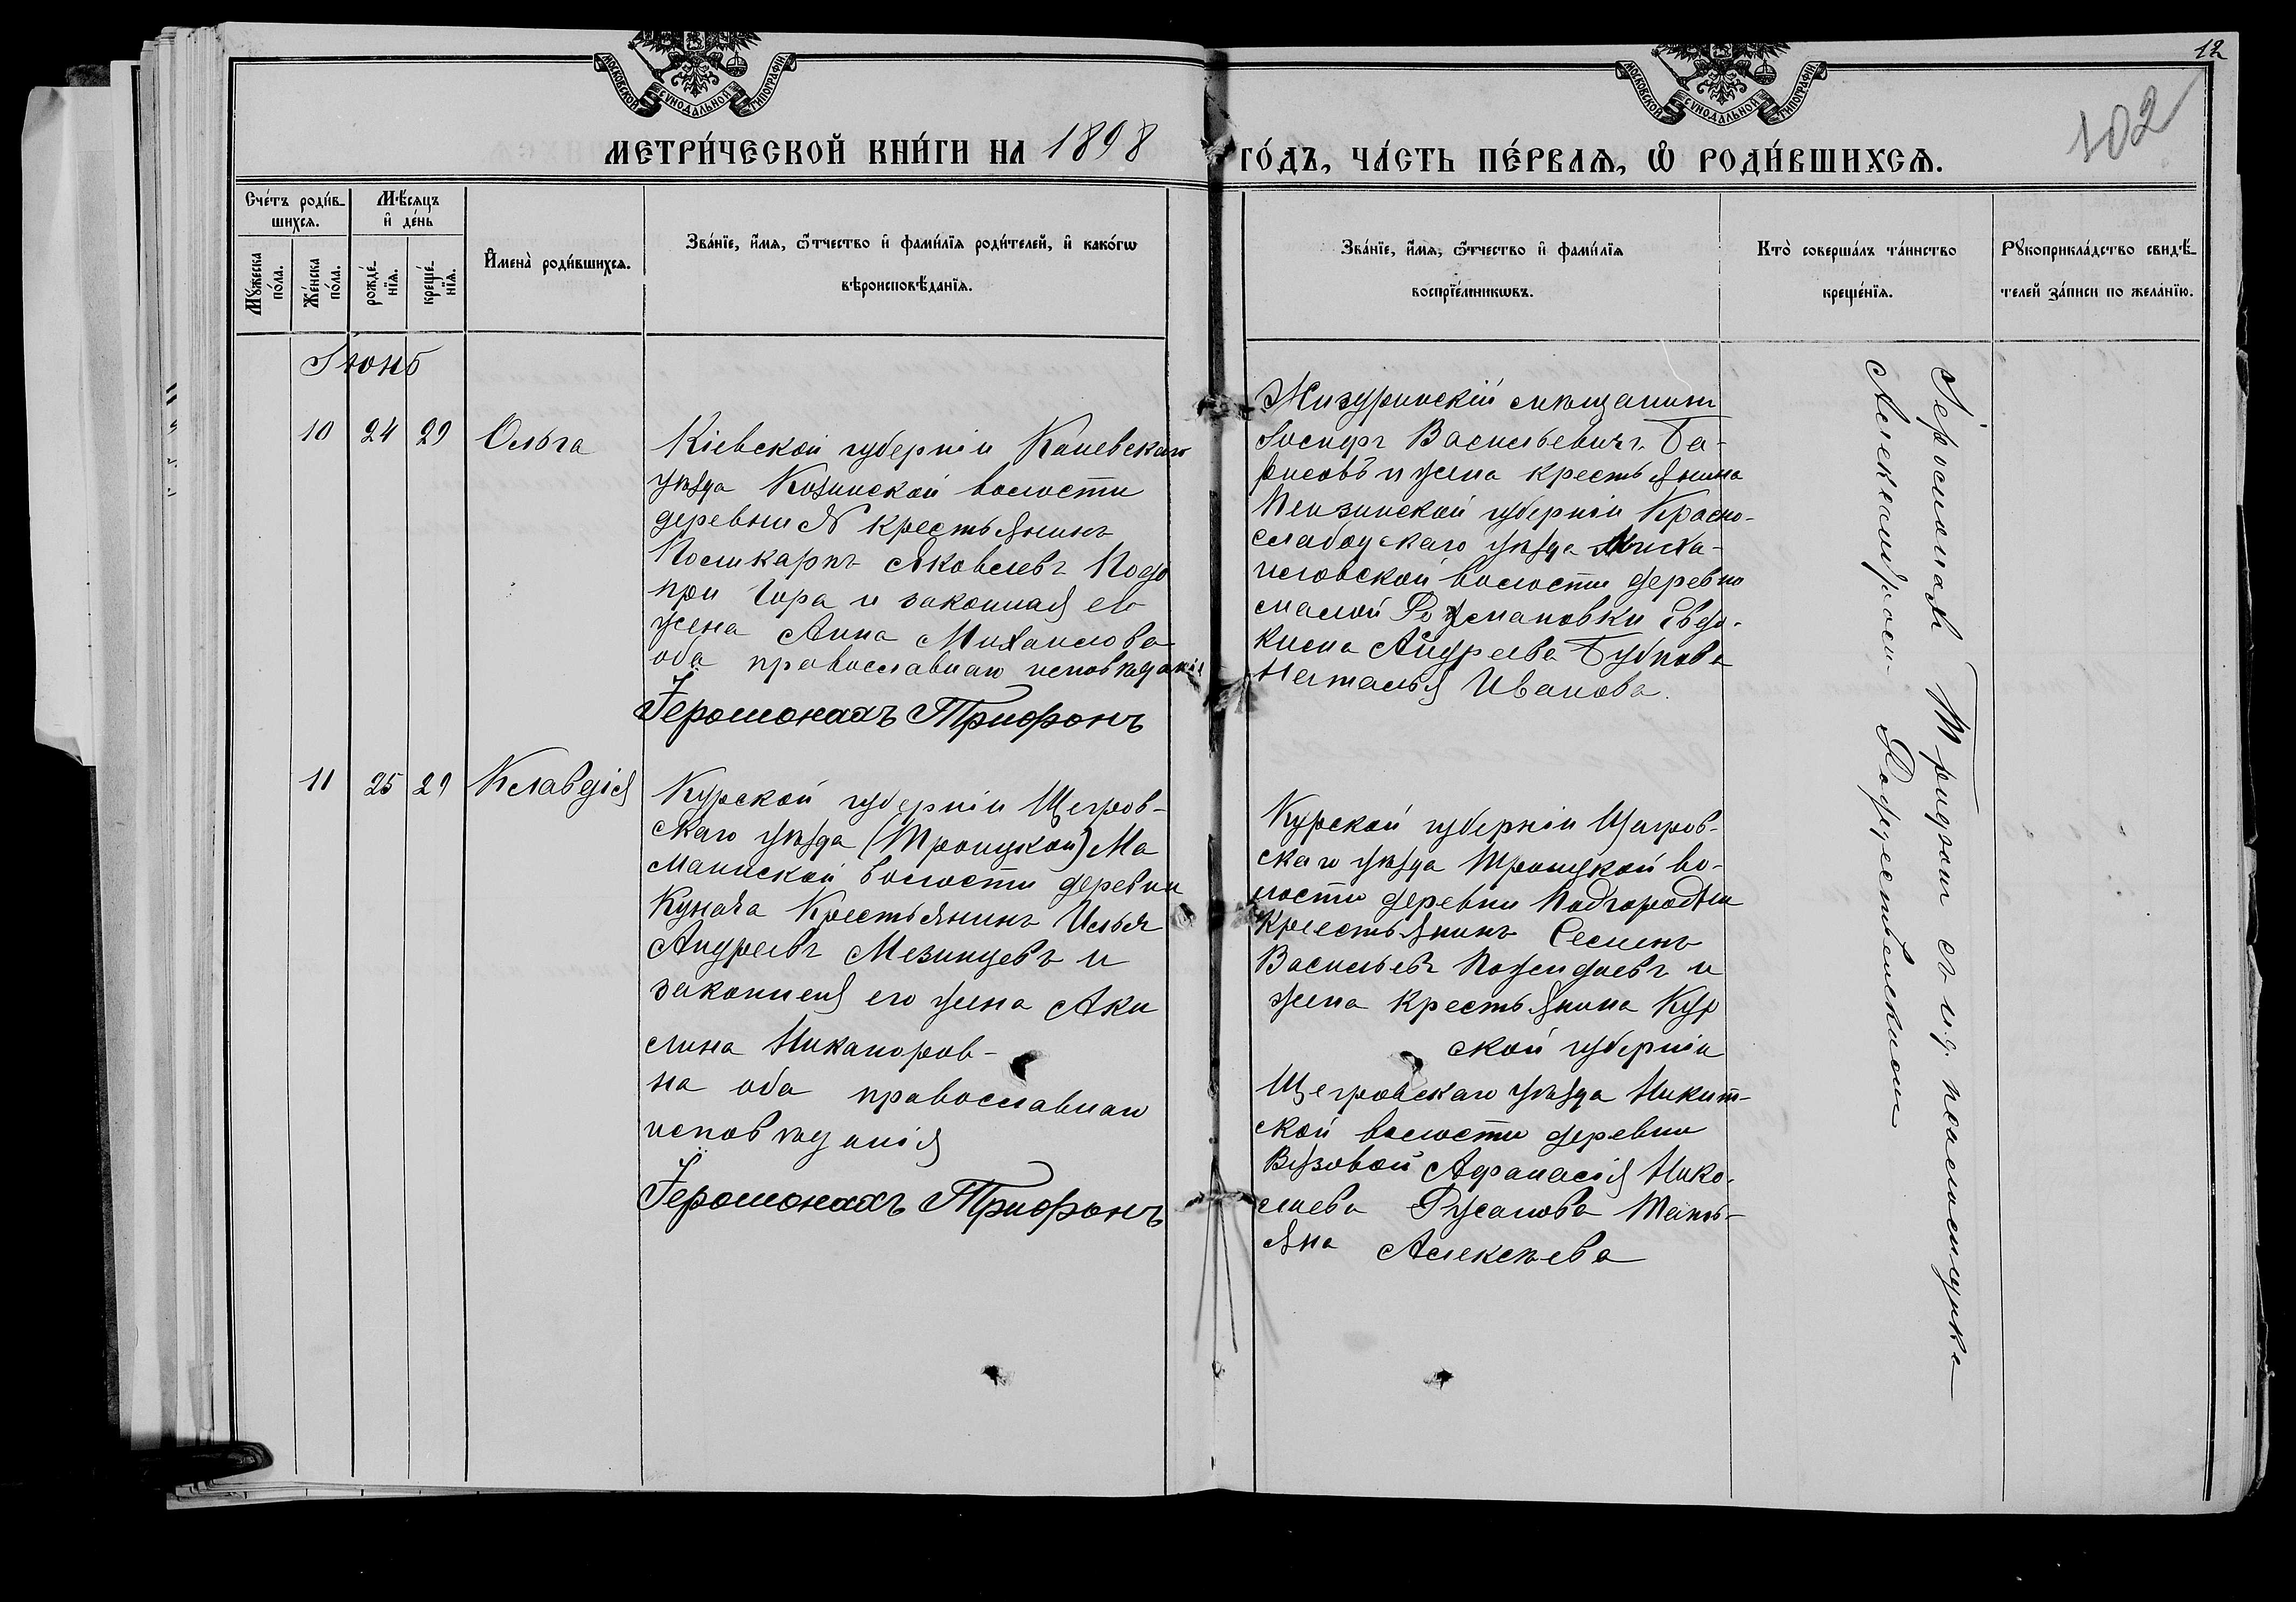 12
102
МОСКОВСКОЙ СѴНОДАЛЬНОЙ ТИПОГРАФІИ
МОСКОВСКОЙ СѴНОДАЛЬНОЙ ТИПОГРАФІИ
МЕТРИ́ЧЕСКОЙ КНИ́ГИ НА 1898 ГО́ДЪ, ЧА́СТЬ ПЕ́РВАѦ, Ѡ҆ РОДИ́ВШИХСѦ.
Сче́тъ роди́в-
шихсѧ.
Мꙋ́жеска
по́ла.
Же́нска
по́ла.
Мѣ́сѧцъ
и҆ де́нь
рожде́-
нїѧ.
креще́-
нїѧ.
И҆мена̀ роди́вшихсѧ.
Зва́нїе, и҆́мѧ, ѻ҆́тчество и҆ фами́лїѧ роди́телей, и҆ како́гѡ
вѣроисповѣ́данїѧ.
Зва́нїе, и҆́мѧ, ѻ҆́тчество и҆ фами́лїѧ
воспрїе́мникѡвъ.
Кто̀ соверша́лъ та́инство
креще́нїѧ.
Рꙋкоприкла́дство свидѣ́-
телей за́писи по жела́нїю.
Іюнь
10 24 29 Ольга
Кіевской губерніи Каневскаго
уѣзда Козинской волости
деревни N крестьянинъ
Поликарпъ Яковлевъ Подо
при Гора и законная его
жена Анна Михаилова
оба православнаго исповѣданія
Іеромонахъ Трифонъ
мѣщанинъ
Іосифъ Васильевичъ Ба-
рисовъ и жена крестьянина
Пензинской губерніи Красно-
слабодскаго уѣзда Миха-
иловской волости деревни
малой Евдо-
кима Андреева Бубнова
Наталья Иванова.
11 25 29 Клавдія
Курской губерніи Щегров-
скаго уѣзда (Троицкой) Ма
маниской волости деревни
Кунача Крестьянинъ Илья
Андреевъ Мезинцевъ и
законная его жена Аки
лина Никаноров-
на оба православнаго
исповѣданія
Іеромонахъ Трифонъ
Курской губерніи Щигров-
скаго уѣзда Троицкой во-
лости деревни Подгородни
Крестьянинъ Семенъ
Васильевъ и
жена Крестьянина Кур
ской губерніи
Щегровскаго уѣзда Никит-
ской волости деревни
Вузовой Афанасія Нико-
лаева Русанова Тать-
яна Алексѣева
Іеромонахъ Трифонъ съ и.д. псаломщика
Александромъ Рождественскимъ